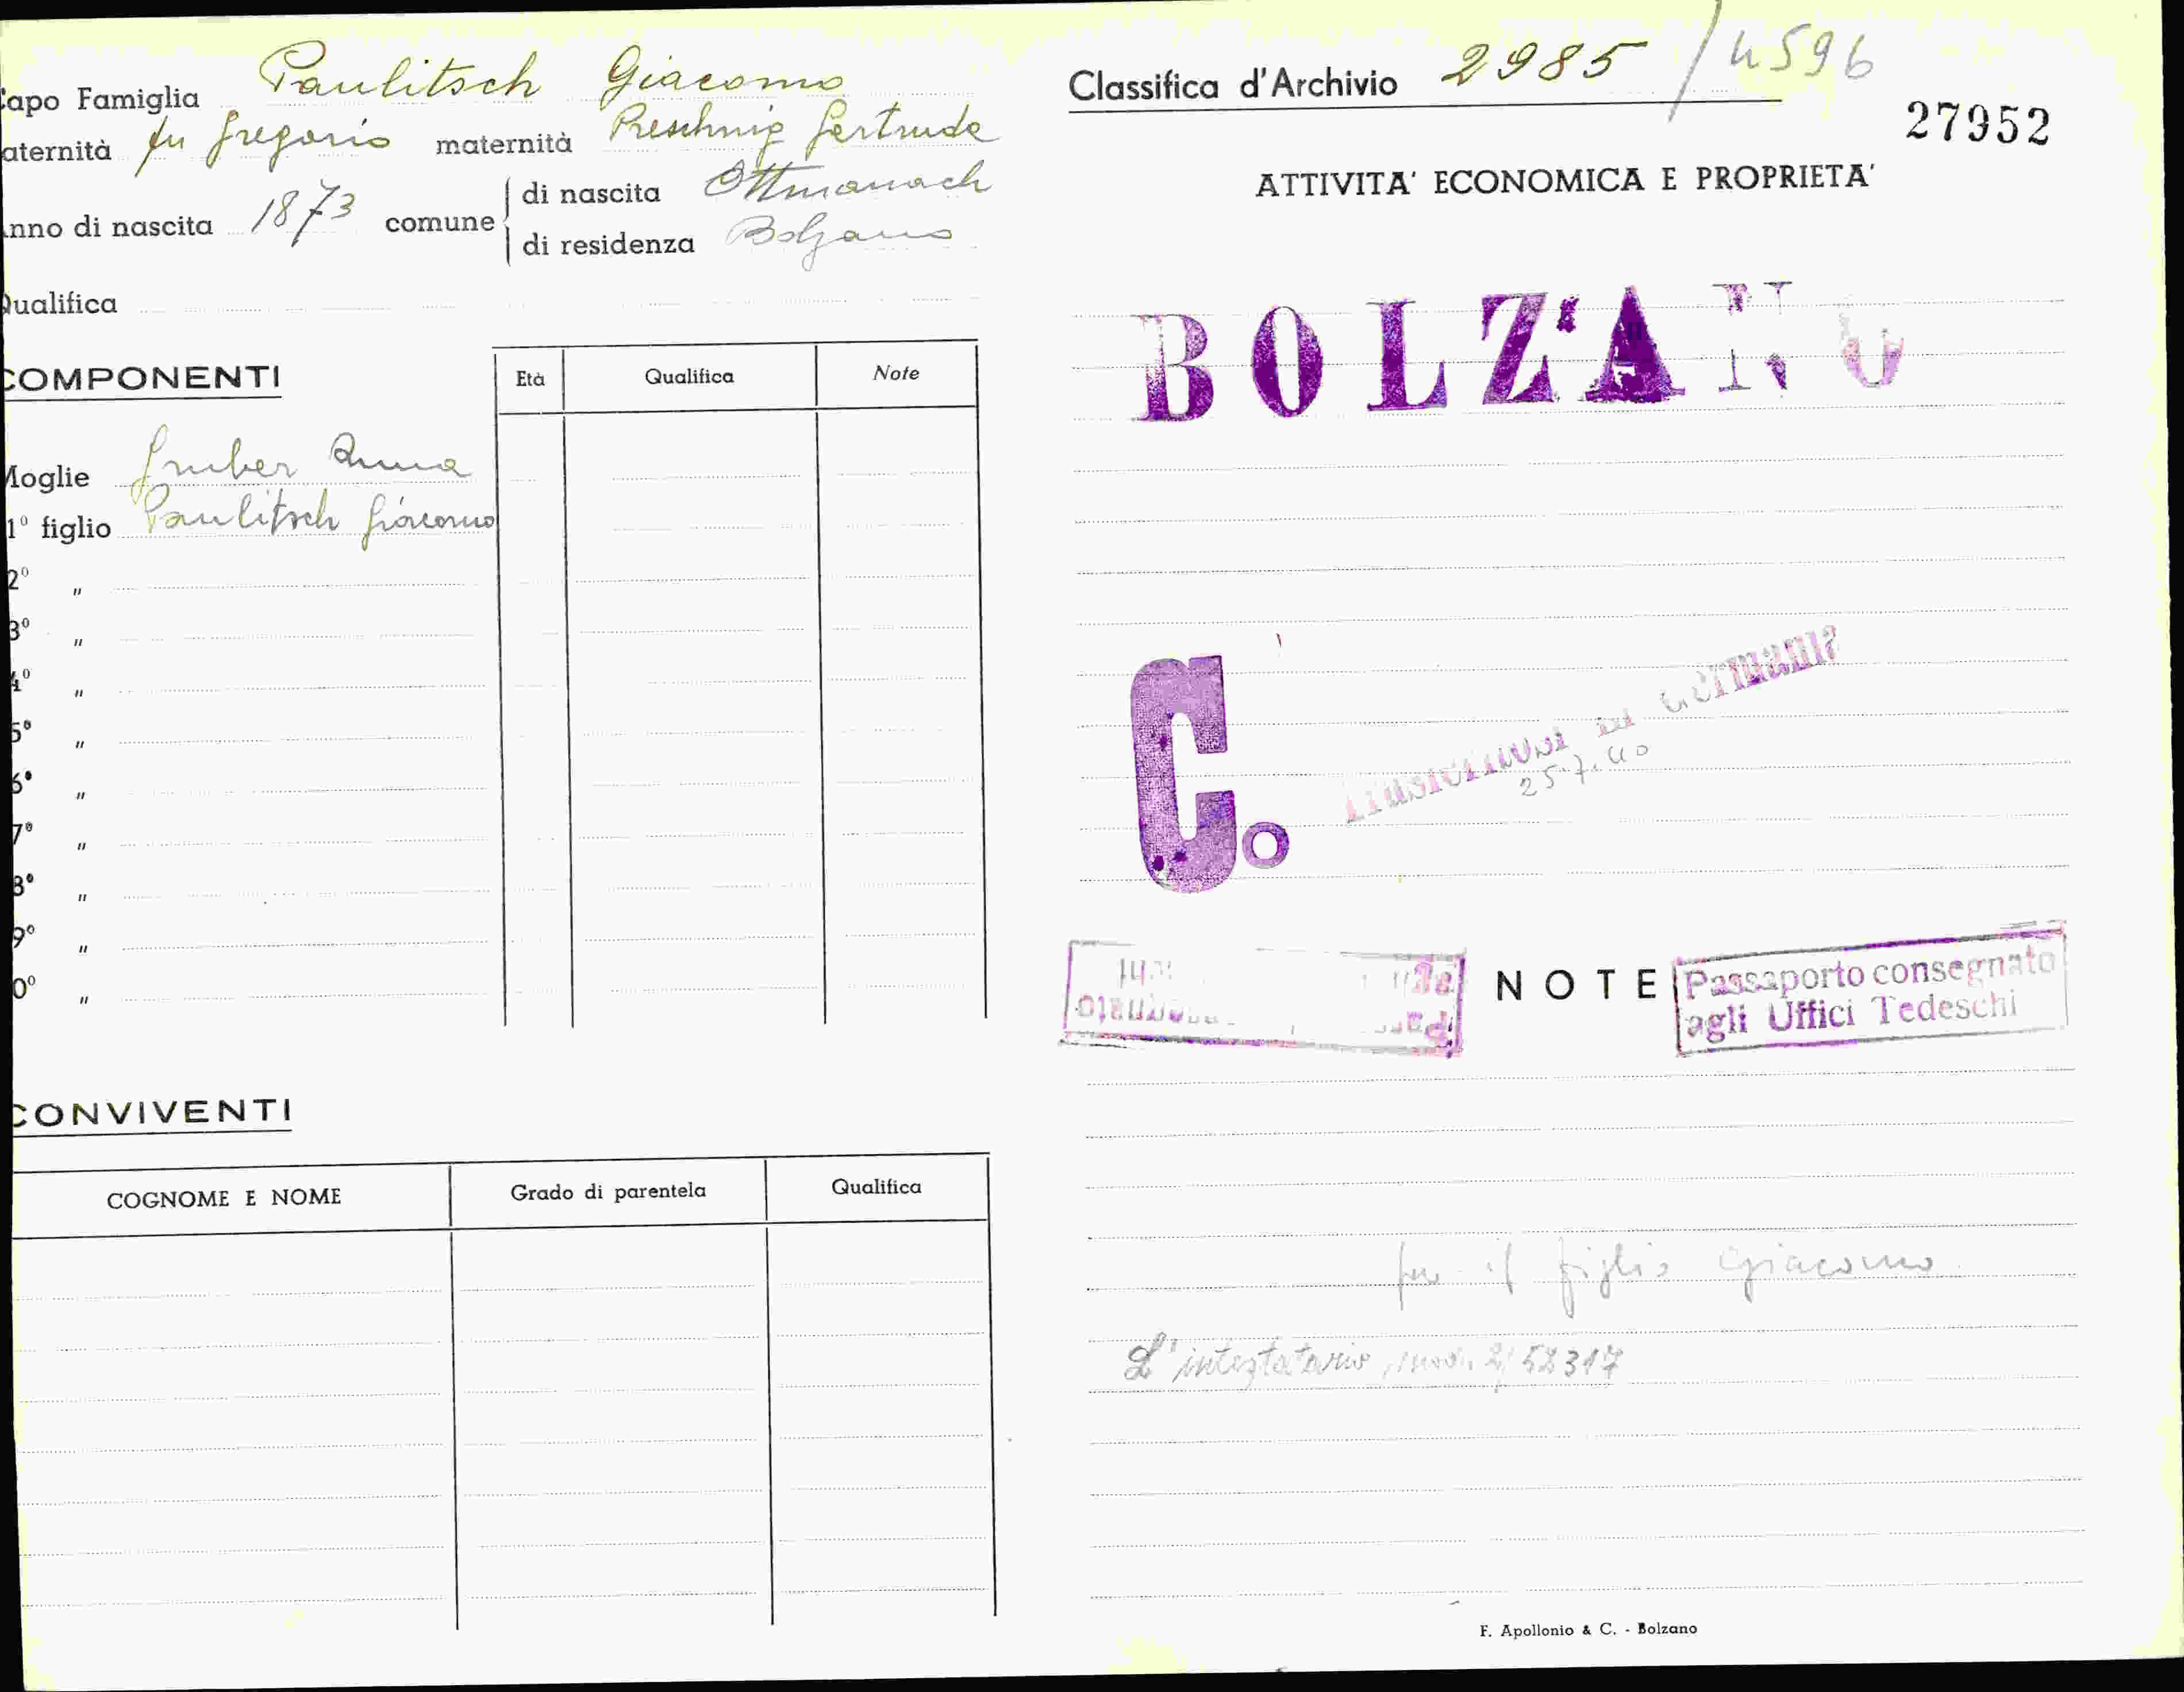 Capo Famiglia Paulitsch Giacomo
aternità fu Gregorio maternità Preschnig Gertrude
nno di nascita 1873 comune di nascita Ottmanach
di residenza Bolzano
Qualifica
COMPONENTI Età Qualifica Note
Moglie Gruber Anna
1º figlio Paulitsch Giacomo
2º "
3º "
4º "
5º "
6º "
7º "
8º "
9º "
0º "
CONVIVENTI
COGNOME E NOME Grado di parentela Qualifica
Classifica d'Archivio 2985 / 4596
27952
ATTIVITA' ECONOMICA E PROPRIETA'
BOLZANO
C.
Trasferitosi in Germania
25.7.40
NOTE
Passaporto consegnato
agli Uffici Tedeschi
per il figlio Giacomo
L'intestatario 52317
F. Apollonio & C. - Bolzano